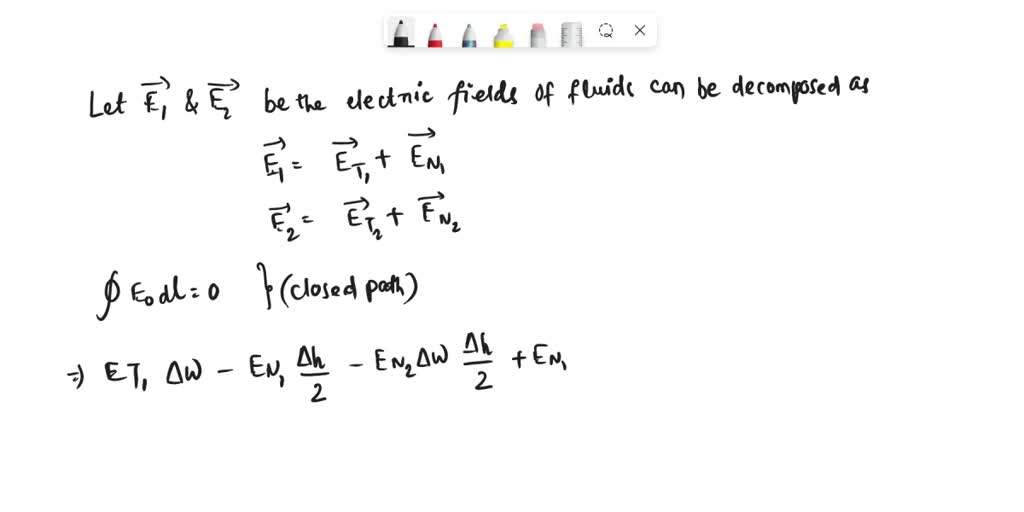 Let E⃗₁ & E⃗₂ be the electric fields of fluids can be decomposed as
E⃗₁ = E⃗_T₁ + E⃗_N₁
E⃗₂ = E⃗_T₂ + E⃗_N₂
∮ E₀ dl = 0 } (closed path)
⇒ E_T₁ ΔW − E_N₁ Δh/2 − E_N₂ ΔW Δh/2 + E_N₁